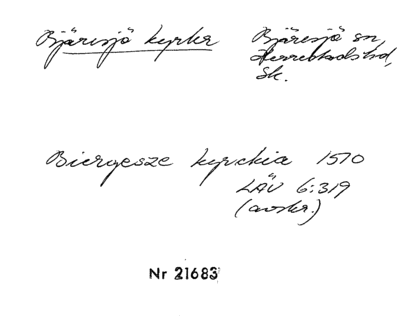 Bjäresjö kyrka
Bjäresjö sn,
Herrestads hd,
Sk.
Biergesze kyrckia 1510
LÄU 6:319
(avskr.)
Nr 21683